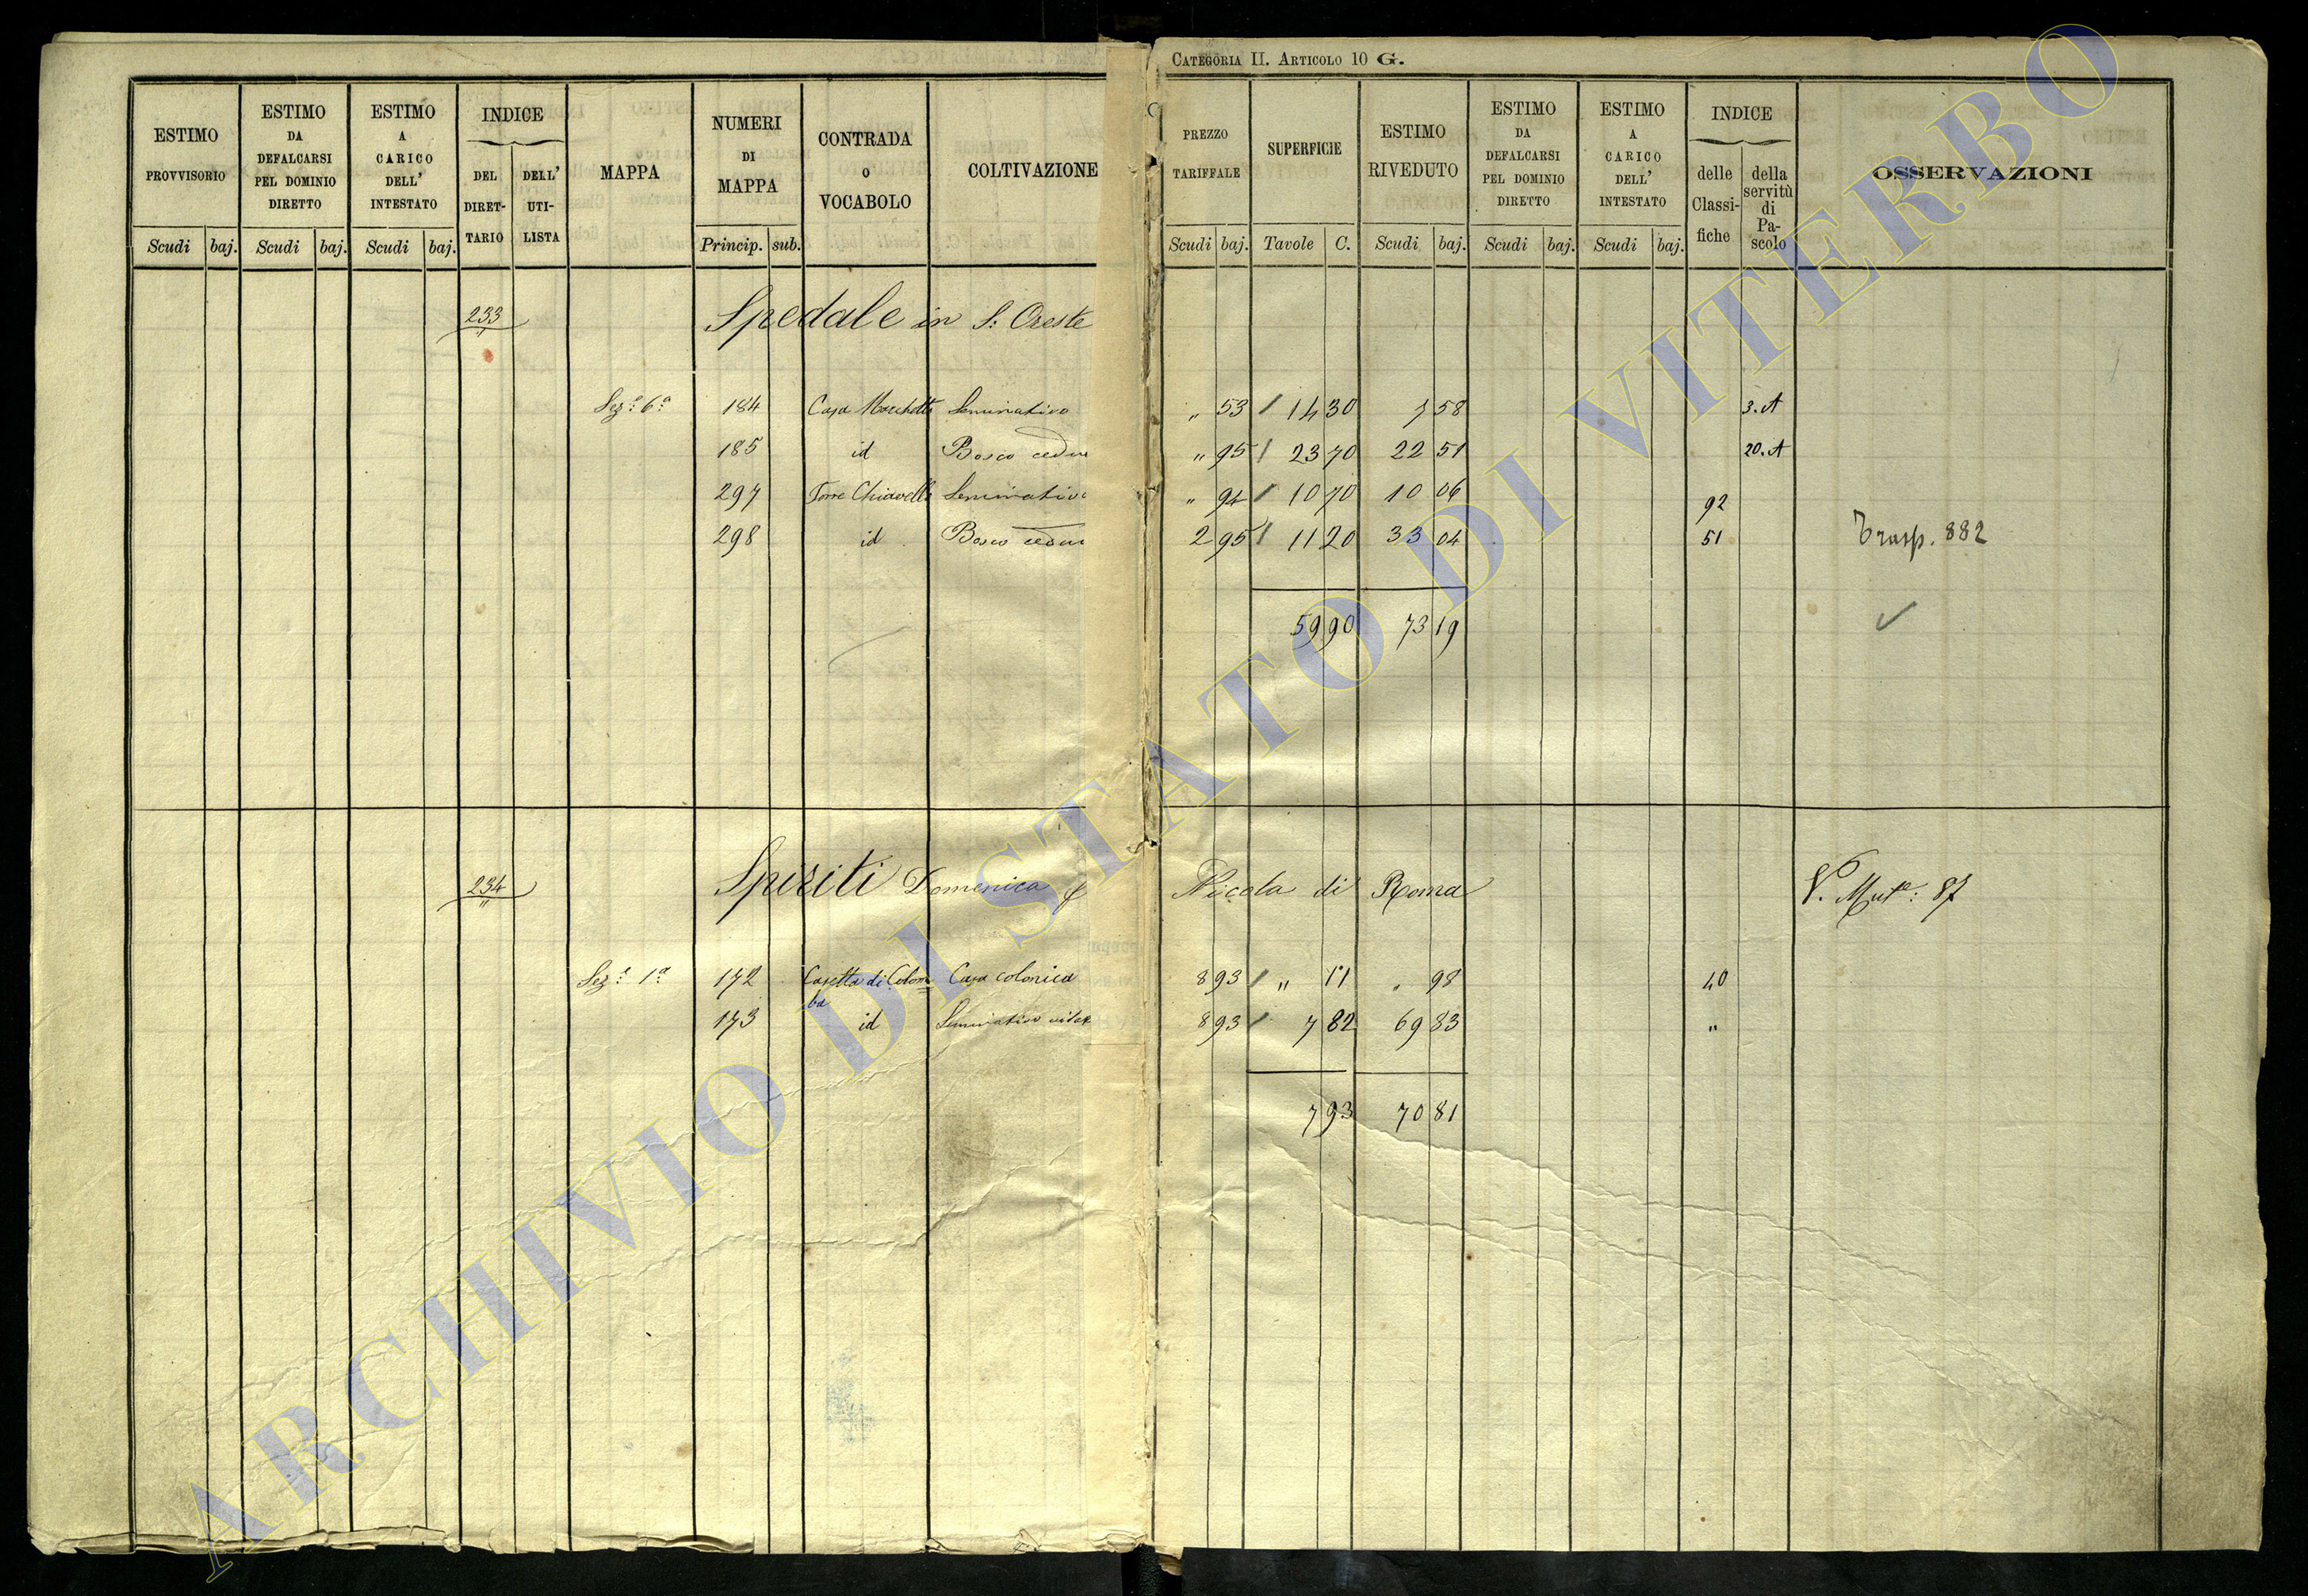 CATEGORIA II. ARTICOLO 10 G.
ESTIMO PROVVISORIO
Scudi baj.
ESTIMO DA DEFALCARSI PEL DOMINIO DIRETTO
Scudi baj.
ESTIMO A CARICO DELL' INTESTATO
Scudi baj.
INDICE
DEL DIRET- TARIO
DELL' UTI- LISTA
MAPPA
NUMERI DI MAPPA
Princip. sub.
CONTRADA O VOCABOLO
COLTIVAZIONE
PREZZO TARIFFALE
Scudi baj.
SUPERFICIE
Tavole C.
ESTIMO RIVEDUTO
Scudi baj.
ESTIMO DA DEFALCARSI PEL DOMINIO DIRETTO
Scudi baj.
ESTIMO A CARICO DELL' INTESTATO
Scudi baj.
INDICE
delle Classi- fiche
della servitù di Pa- scolo
OSSERVAZIONI
233 Spedale in S: Oreste
Sez.e 6.a 184 Seminativo " 53 14 30 7 58 3. A
185 id Bosco " 95 23 70 22 51 20. A
297 Torre Seminativo " 94 10 70 10 06 92
298 id Bosco 2 95 11 20 33 04 51 Trasp. 882
59 90 73 19
234 Spiriti Domenica f Nicola di Roma V. Mut.e: 87
Sez.e 1.a 172 Casetta di Colom Casa colonica 8 93 " 11 " 98 40
ba
173 id Seminativo vitat 8 93 7 82 69 83 "
7 93 70 81
ARCHIVIO DI STATO DI VITERBO